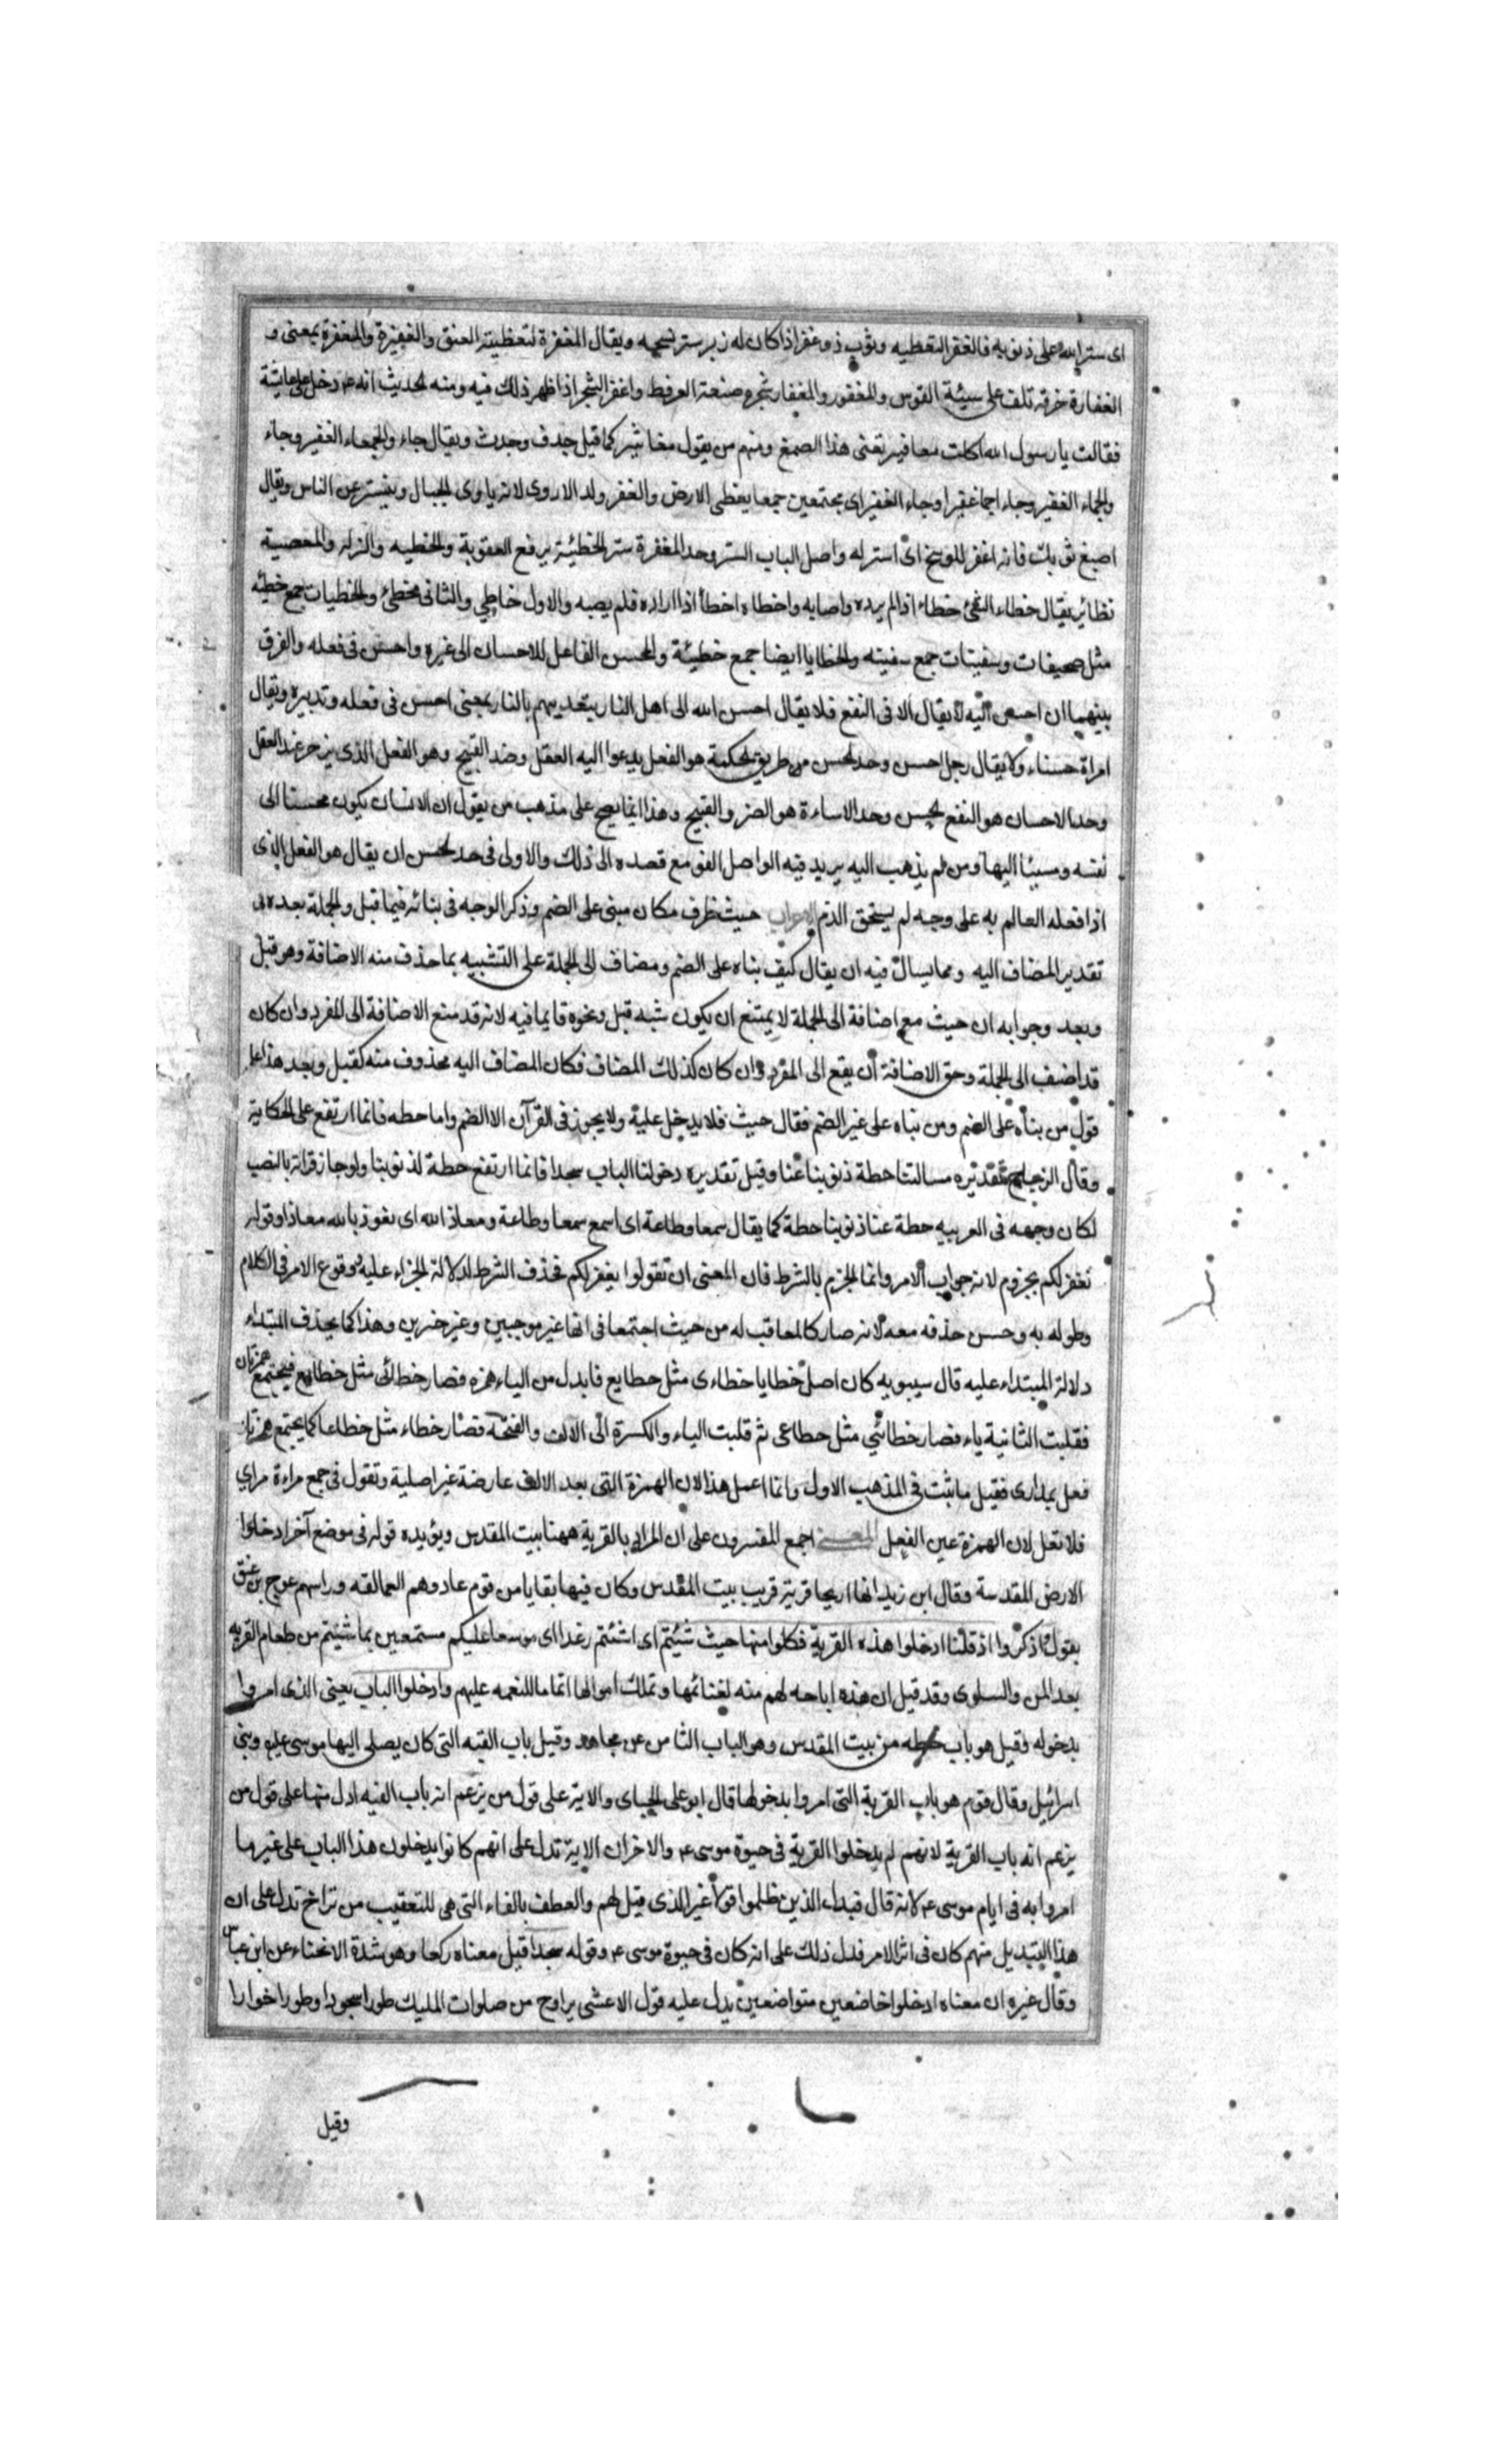 ای ستر الله علی ذنوبه فالغفر التغطیه وثوب ذوغفر اذا کان له زبر ستر نسجه ویقال المغفرة لتغطیة العنق والغفیرة والمغفرة بمعنی و
الغفارة خرقه تلف علی سیئة القوس والمغفور والمغفار شجره صنعة العرفط واغفر الشجر اذا ظهر ذلک فیه ومنه الحدیث انه ع دخل علی عایشة
فقالت یا رسول الله اکلت مغافیر یعنی هذا الصمغ ومنهم من یقول مغاثیر کما قیل جدف وجدث ویقال جاء والجماء الغفیر وجاء
والجماء الغفیر وجاء اجماغفیرا وجاء الغفیر ای مجتمعین جمعا یغطی الارض والغفر ولد الاروی لانه یاوی الجبال ویتستر عن الناس ویقال
اصبغ ثوبک فانه اغفر للوسخ ای استر له واصل الباب الستر وحد المغفرة ستر الخطیئة برفع العقوبة والخطیه والزله والمعصیة
نظائر یقال خطاء الشئ خطاء اذا لم یرده واصابه واخطاه اخطأ اذا اراده فلم یصبه والاول خاطی والثانی مخطئ والخطیات جمع خطیئه
مثل صحیفات وسفینات جمع سفینه والخطایا ایضا جمع خطیئة والمحسن الفاعل للاحسان الی غیره واحسن فی فعله والفرق
بینهما ان احسن الیه لا یقال الا فی النفع فلا یقال احسن الله الی اهل النار بتعذیبهم بالنار بمعنی احسن فی فعله وتدبیره ویقال
امراة حسناء ولا یقال رجل احسن وحد الحسن من طریق الحکمة هو الفعل یدعوا الیه العقل وضد القبیح وهو الفعل الذی یزجر عند العقل
وحد الاحسان هو النفع الحسن وحد الاساءة هو الضرر القبیح وهذا انما یصح علی مذهب من یقول ان الانسان یکون محسنا الی
نفسه ومسیئا الیها ومن لم یذهب الیه یرید فیه الواصل الفو مع قصده الی ذلک والاولی فی حد الحسن ان یقال هو الفعل الذی
اذا فعله العالم به علی وجه لم یستحق الذم الاعراب حیث ظرف مکان مبنی علی الضم وذکر الوجه فی بنائه فیما قبل والجملة بعده فی
تقدیر المضاف الیه ومما یسال فیه ان یقال کیف بناه علی الضم ومضاف الی الجملة علی التشبیه بما حذف منه الاضافة وهو قبل
وبعد وجوابه ان حیث مع اضافة الی الجملة لا یمتنع ان یکون شبه قبل ونحوه قایما فیه لانه قد منع الاضافة الی المفرد وان کان
قد اضیف الی الجملة وحق الاضافة ان یقع الی المفرد وان کان کذلک المضاف فکان المضاف الیه محذوف منه کقبل وبعد هذا علی
قول من بناه علی الضم ومن بناه علی غیر الضم فقال حیث فلا یدخل علیه ولا یجوز فی القرآن الا الضم واما حطه فانما ارتفع علی الحکایة
وقال الزجاج تقدیره مسالتنا حطة ذنوبنا عنا وقیل تقدیره دخولنا الباب سجدا فانما ارتفع حطة لذنوبنا ولو جاز قراته بالنصب
لکان وجهه فی العربیه حطة عنا ذنوبنا حطة کما یقال سمعا وطاعة ای اسمع سمعا وطاعة ومعاذ الله ای نعوذ بالله معاذا وقوله
نغفر لکم مجزوم لانه جواب الامر وانما الجزم بالشرط فان المعنی ان تقولوا یغفر لکم فحذف الشرط لدلالة الجزاء علیه وقوع الامر فی الکلام
وطوله به وحسن حذفه معه لانه صار کالمعاقب له من حیث اجتمعا فی انها غیر موجبین وغیر خبرین وهذا کما یحذف المبتداء
دلالة المبتداء علیه قال سیبویه کان اصل خطایا خطاءی مثل خطایع فابدل من الیاء همزه فصار خطائی مثل خطاایع فیجتمع همزتان
فقلبت الثانیة یاء فصار خطائی مثل خطاعی ثم قلبت الیاء والکسرة الی الالف والفتحة فصار خطاء مثل خطاعا کما یجتمع همزتان
فعل بمداری فقیل ما ثبت فی المذهب الاول وانما اعمل هذا لان الهمزة التی بعد الالف عارضة غیر اصلیة وتقول فی جمع مراءة مراي
فلا تعل لان الهمزة عین الفعل المعنی اجمع المفسرون علی ان المراد بالقریة ههنا بیت المقدس ویؤیده قوله فی موضع آخر ادخلوا
الارض المقدسة وقال ابن زید انها اریحا قریة قریب بیت المقدس وکان فیها بقایا من قوم عاد وهم العمالقه وراسهم عوج بن عنق
یقول اذکروا اذ قلنا ادخلوا هذه القریة فکلوا منها حیث شئتم ای اشئتم رغدا ای موسعا علیکم مستمتعین بما شئتم من طعام القریه
بعد المن والسلوی وقد قیل ان هذه اباحه لهم منه لغنائمها وتملک اموالها اتماما للنعمه علیهم وادخلوا الباب یعنی الذی امروا
بدخوله فقیل هو باب حطه من بیت المقدس وهو الباب الثامن عن مجاهد وقیل باب القبه التی کان یصلی الیها موسی علیه وبنی
اسرائیل وقال قوم هو باب القریة التی امروا بدخولها قال ابو علی الجبای والایة علی قول من یزعم انه باب القبه ادل منها علی قول من
یزعم انه باب القریة لانهم لم یدخلوا القریة فی حیوة موسی ع والاخران الایة تدل علی انهم کانوا یدخلون هذا الباب علی غیر ما
امروا به فی ایام موسی ع لانه قال فبدل الذین ظلموا قولا غیر الذی قیل لهم والعطف بالفاء التی هی للتعقیب من تراخ تدل علی ان
هذا التبدیل منهم کان فی اثر الامر فدل ذلک علی انه کان فی حیوة موسی ع وقوله سجدا قیل معناه رکعا وهو شدة الانحناء عن ابن عباس
وقال غیره ان معناه ادخلوا خاضعین متواضعین یدل علیه قول الاعشی یراوح من صلوات الملیک طورا سجودا وطورا خوارا
وقیل